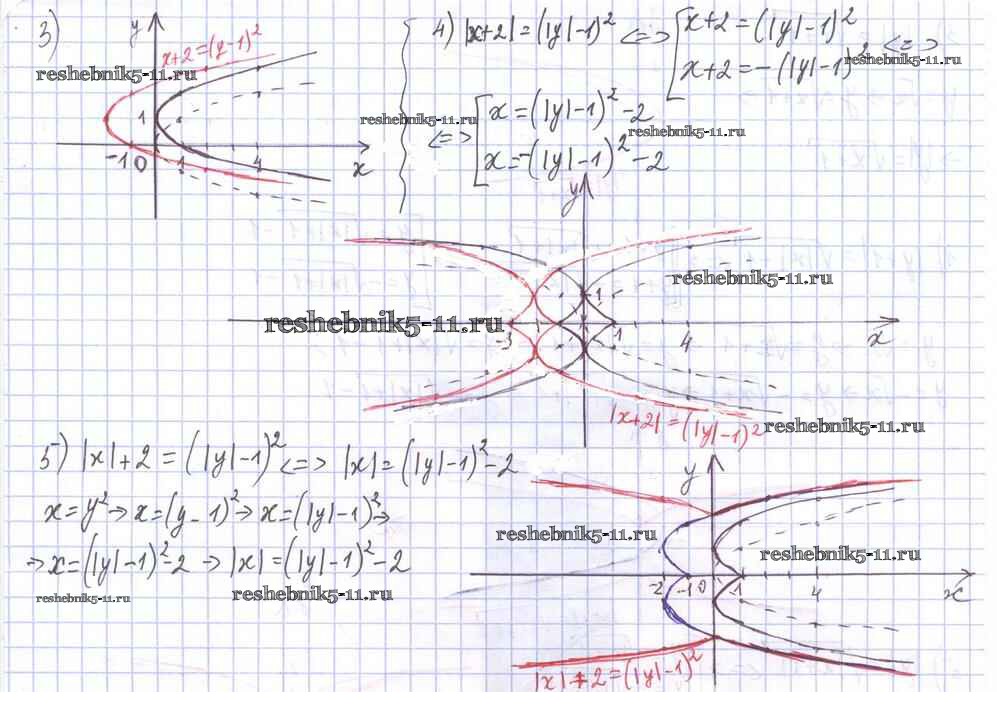 3)
y
x+2=(y-1)²
reshebnik5-11.ru
1
-1 0 1 4 x
4) |x+2|=(|y|-1)² <=> [ x+2=(|y|-1)²
x+2=-(|y|-1)² <=>
reshebnik5-11.ru
<=> [ x=(|y|-1)²-2
x=-(|y|-1)²-2
reshebnik5-11.ru
reshebnik5-11.ru
y
1
reshebnik5-11.ru
reshebnik5-11.ru
-3 1 4 x
|x+2|=(|y|-1)²
reshebnik5-11.ru
5) |x|+2=(|y|-1)² <=> |x|=(|y|-1)²-2
x=y² → x=(y-1)² → x=(|y|-1)² →
→ x=(|y|-1)²-2 → |x|=(|y|-1)²-2
reshebnik5-11.ru
reshebnik5-11.ru
y
reshebnik5-11.ru
reshebnik5-11.ru
-2 -1 0 1 4 x
|x|+2=(|y|-1)²